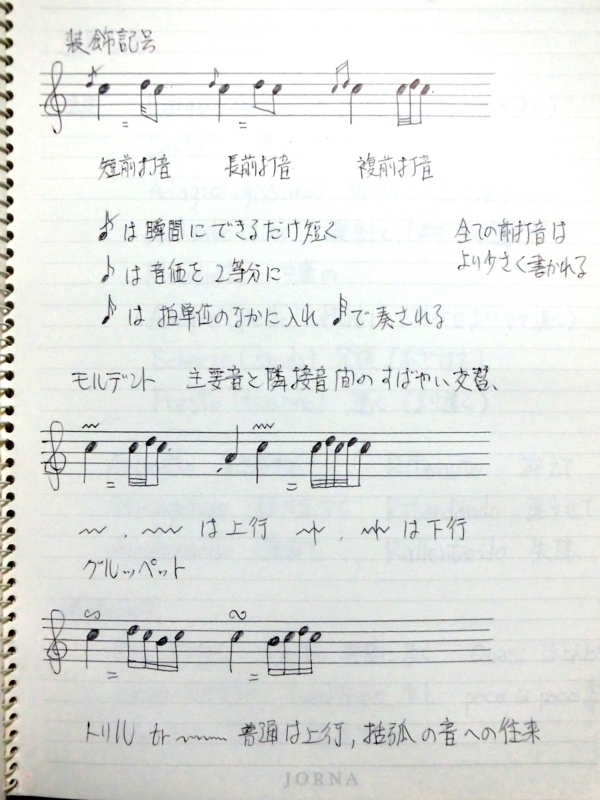 装飾記号
短前打音 長前打音 複前打音
は瞬間にできるだけ短く
は音価を2等分に
は拍単位のなかに入れ で奏される
全ての前打音は
より少さく書かれる
モルデント 主要音と隣接音間のすばやい交替、
は上行 , は下行
グルッペット
トリル tr 普通は上行, 括弧の音への往来
JORNA